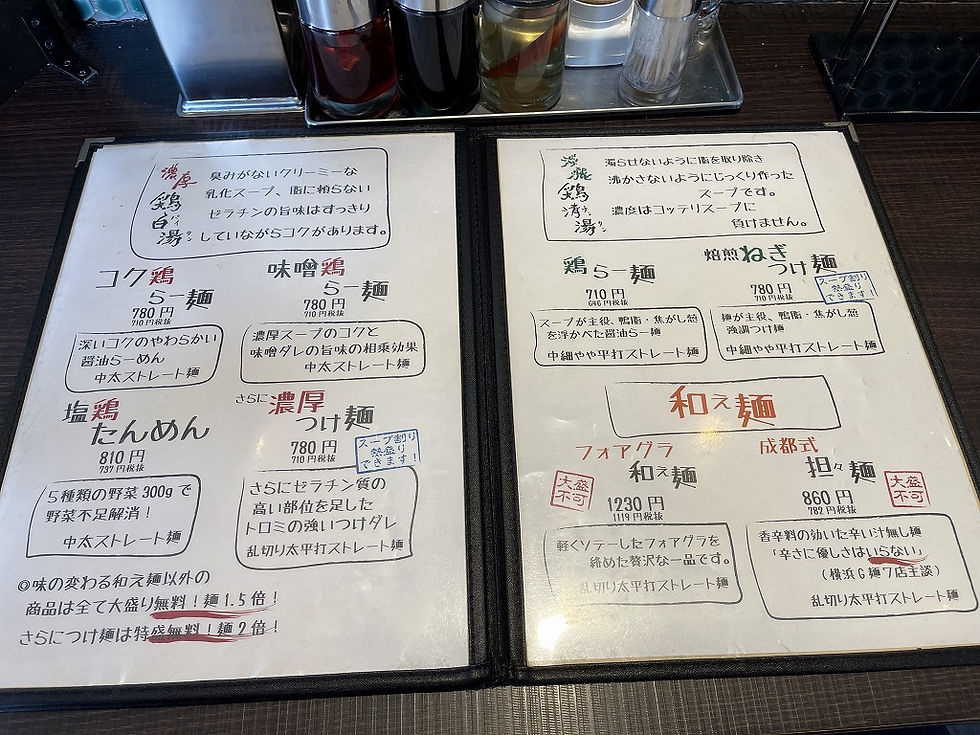 濃厚
鶏白湯
パイタン
臭みがないクリーミーな
乳化スープ、脂に頼らない
ゼラチンの旨味はすっきり
していながらコクがあります。
コク鶏
らー麺
780円
710円税抜
深いコクのやわらかい
醤油らーめん
中太ストレート麺
味噌鶏
らー麺
780円
710円税抜
濃厚スープのコクと
味噌ダレの旨味の相乗効果
中太ストレート麺
塩鶏
たんめん
810円
737円税抜
5種類の野菜300gで
野菜不足解消！
中太ストレート麺
さらに濃厚
つけ麺
780円
710円税抜
スープ割り
熱盛り
できます！
さらにゼラチン質の
高い部位を足した
トロミの強いつけダレ
乱切り太平打ストレート麺
◎味の変わる和え麺以外の
商品は全て大盛り無料！麺1.5倍！
さらにつけ麺は特盛無料！麺2倍！
鶏清湯
濁らせないように脂を取り除き
沸かさないようにじっくり作った
スープです。
濃度はコッテリスープに
負けません。
鶏らー麺
710円
646円税抜
スープが主役、鴨脂・焦がし葱
を浮かべた醤油らー麺
中細やや平打ストレート麺
焙煎ねぎ
つけ麺
780円
710円税抜
スープ割り
熱盛り
できます！
麺が主役、鴨脂・焦がし葱
強調つけ麺
中細やや平打ストレート麺
和え麺
フォアグラ
和え麺
大盛
不可
1230円
1119円税抜
軽くソテーしたフォアグラを
絡めた贅沢な一品です。
乱切り太平打ストレート麺
成都式
担々麺
大盛
不可
860円
782円税抜
香辛料の効いた辛い汁無し麺
「辛さに優しさはいらない」
(横浜G麺7店主談)
乱切り太平打ストレート麺